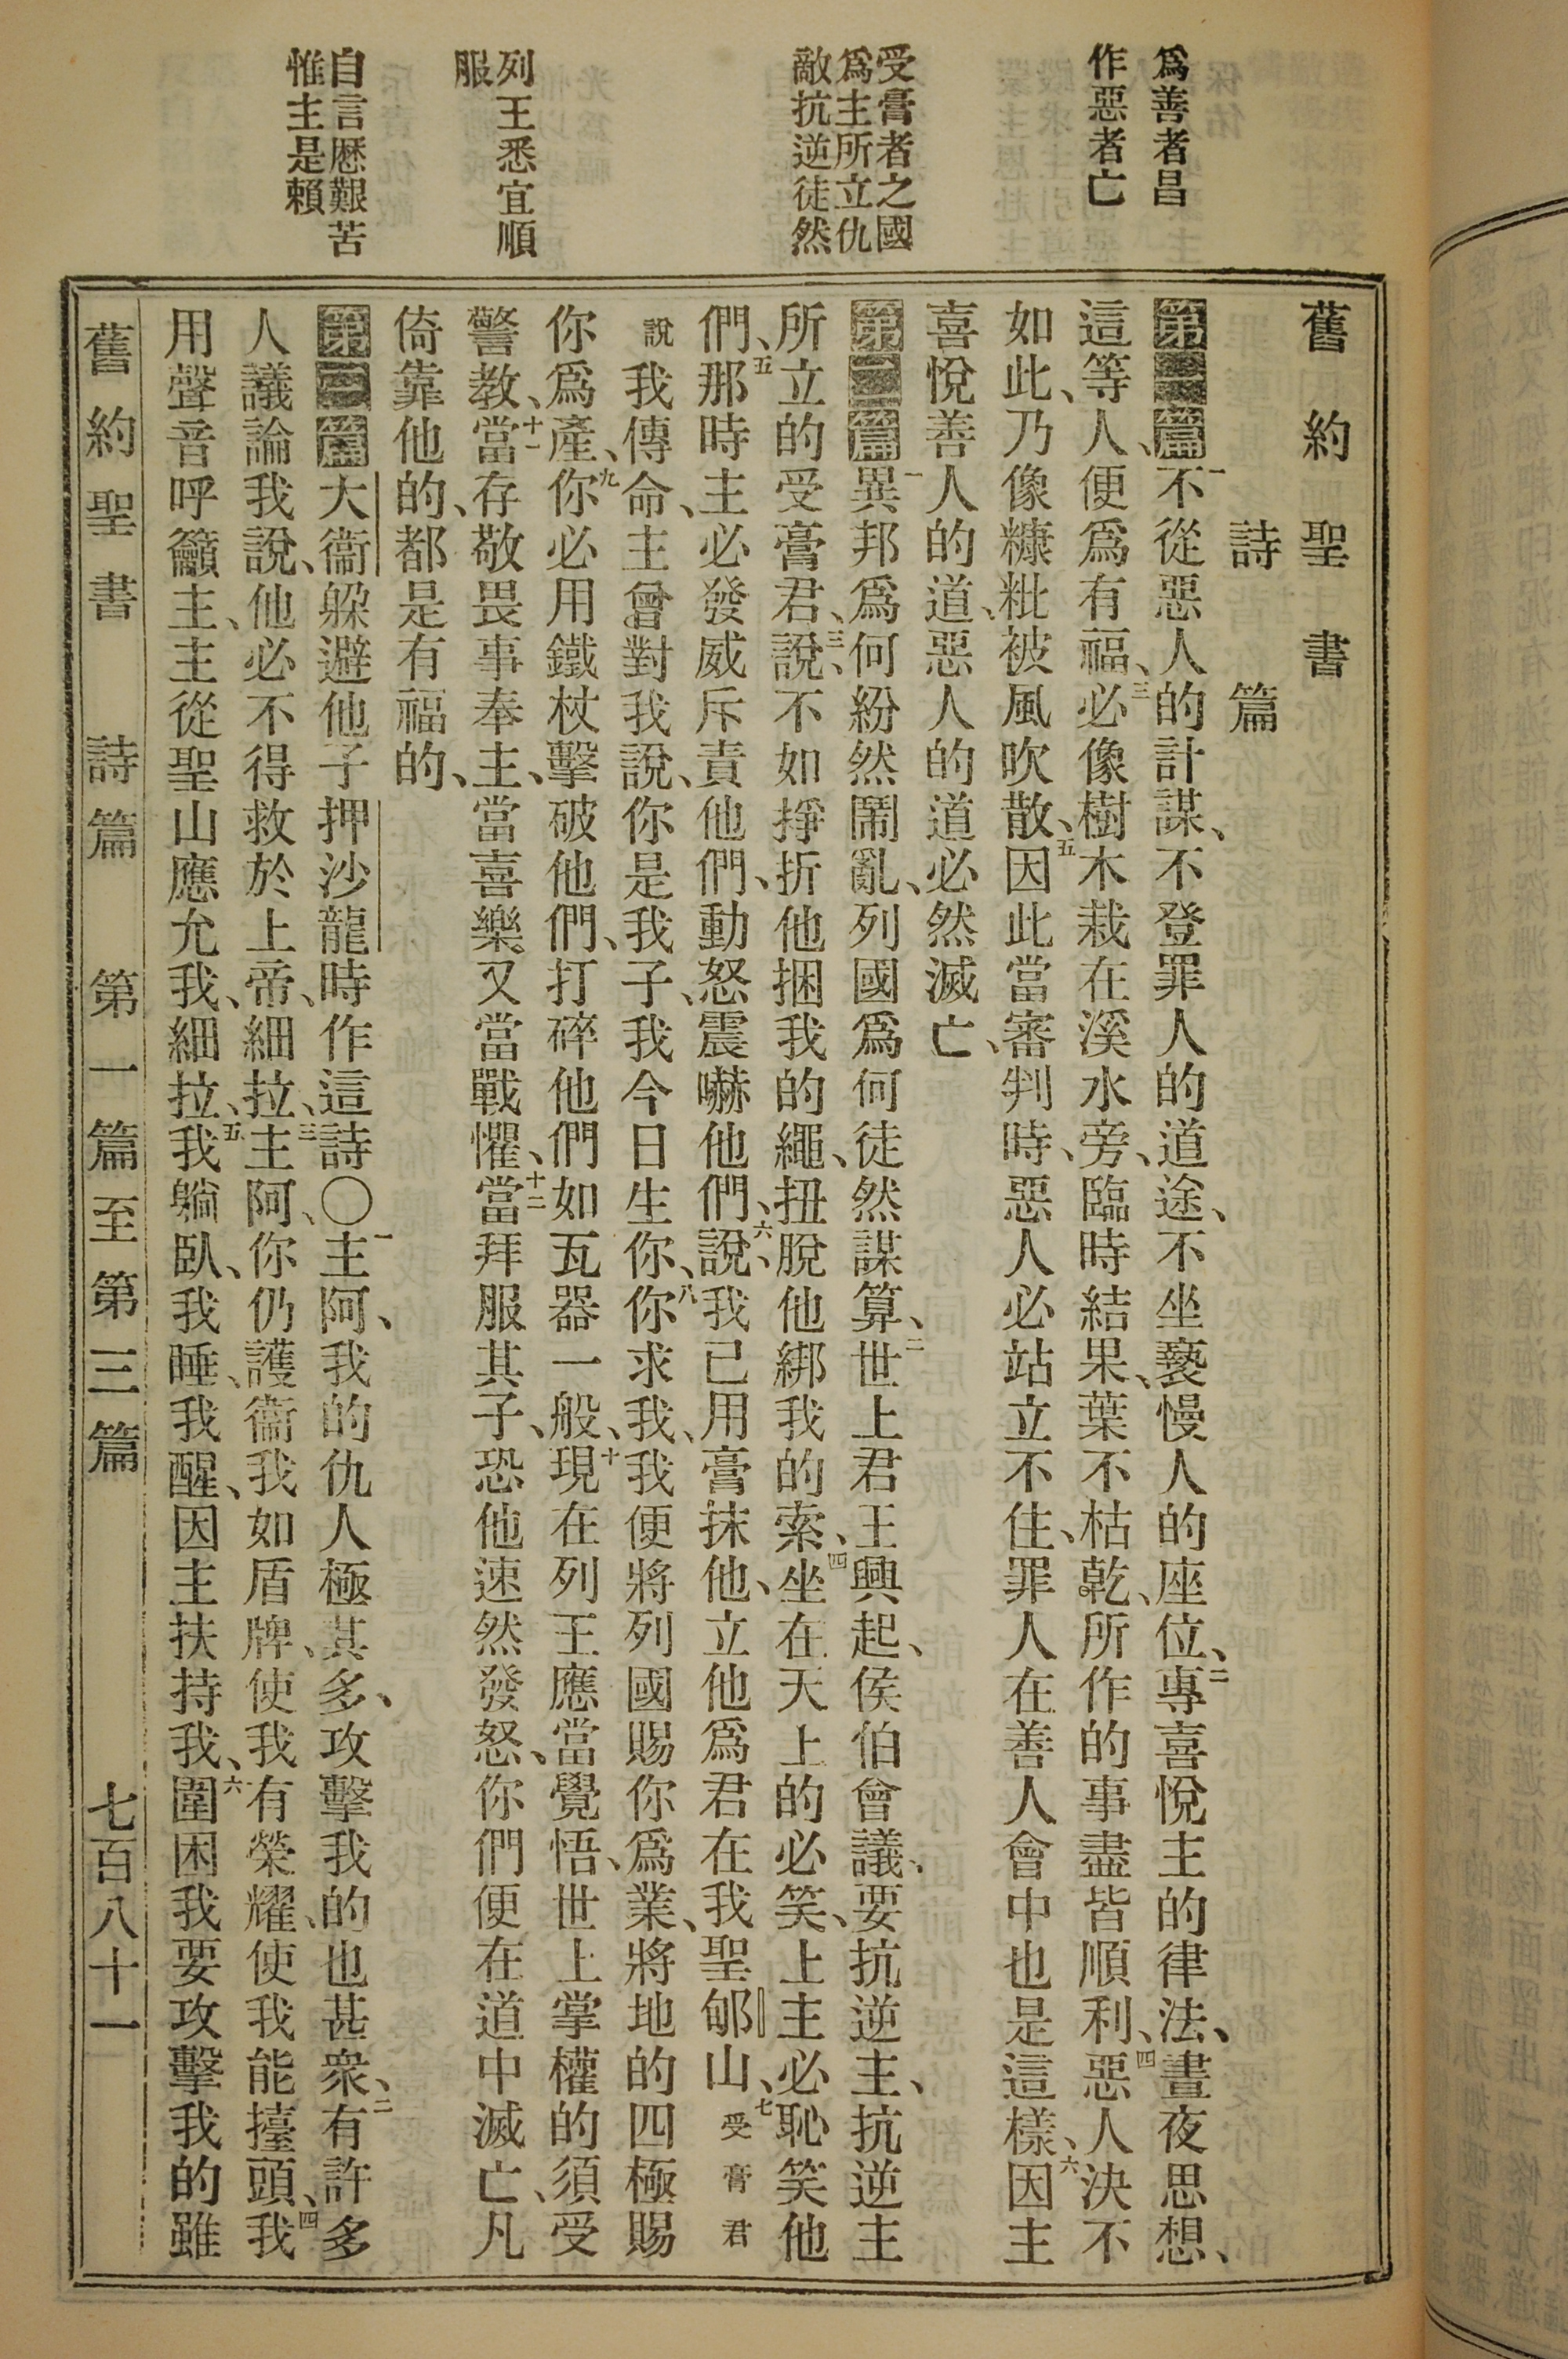 爲善者昌
作惡者亡
受膏者之國
爲主所立仇
敵抗逆徒然
列王悉宜順
服
自言厯艱苦
惟主是賴
舊約聖書
詩篇
第一篇一不從惡人的計謀、不登罪人的道途、不坐褻慢人的座位、二專喜悅主的律法、晝夜思想、
這等人、便爲有福、三必像樹木栽在溪水旁、臨時結果、葉不枯乾、所作的事盡皆順利、四惡人決不
如此、乃像糠粃被風吹散、五因此當審判時、惡人必站立不住、罪人在善人會中也是這樣、六因主
喜悅善人的道、惡人的道必然滅亡、
第二篇一異邦爲何紛然鬧亂、列國爲何徒然謀算、二世上君王興起、侯伯會議、要抗逆主、抗逆主
所立的受膏君、三說、不如掙折他捆我的繩、扭脫他綁我的索、四坐在天上的必笑、上主必恥笑他
們、五那時主必發威斥責他們、動怒震嚇他們、六說、我已用膏抹他、立他爲君在我聖郇山、七受膏君
說我傳命、主曾對我說、你是我子、我今日生你、八你求我、我便將列國賜你爲業、將地的四極賜
你爲產、九你必用鐵杖擊破他們、打碎他們如瓦器一般、十現在列王應當覺悟、世上掌權的須受
警教、十一當存敬畏事奉主、當喜樂又當戰懼、十二當拜服其子、恐他速然發怒、你們便在道中滅亡、凡
倚靠他的、都是有福的、
第三篇大衞躲避他子押沙龍時作這詩〇一主阿、我的仇人極其多、攻擊我的也甚衆、二有許多
人議論我說、他必不得救於上帝、細拉、三主阿、你仍護衞我如盾牌、使我有榮耀、使我能擡頭、四我
用聲音呼籲主、主從聖山應允我、細拉、五我躺臥、我睡、我醒、因主扶持我、六圍困我要攻擊我的雖
舊約聖書　詩篇　第一篇至第三篇　七百八十一